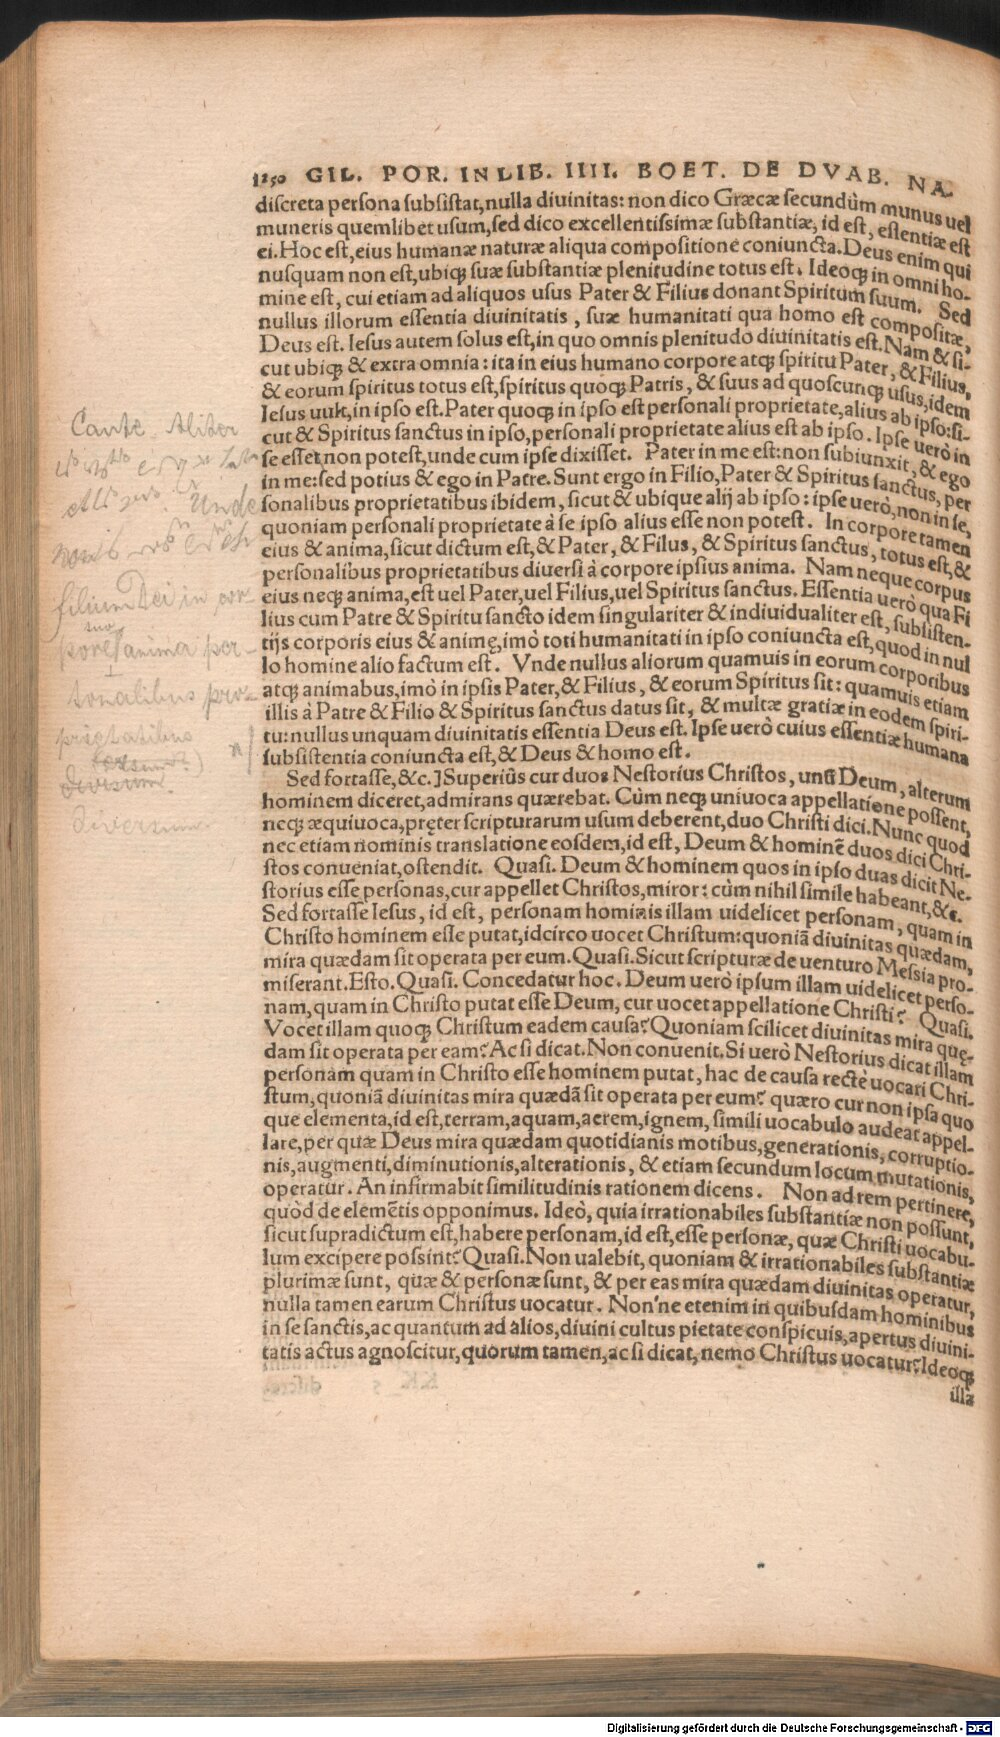 1250 GIL. POR. IN LIB. IIII. BOET. DE DVAB. NA.
discreta persona subsistat, nulla diuinitas: non dico Græcæ secundùm munus uel
muneris quemlibet usum, sed dico excellentissimæ substantiæ, id est, essentiæ est
ei. Hoc est, eius humanæ naturæ aliqua compositione coniuncta. Deus enim qui
nusquam non est, ubiq; suæ substantiæ plenitudine totus est. Ideoq; in omni ho-
mine est, cui etiam ad aliquos usus Pater & Filius donant Spiritum suum. Sed
nullus illorum essentia diuinitatis, suæ humanitati qua homo est compositæ,
Deus est. Iesus autem solus est, in quo omnis plenitudo diuinitatis est. Nam & si-
cut ubiq; & extra omnia: ita in eius humano corpore atq; spiritu Pater, & Filius,
& eorum spiritus totus est, spiritus quoq; Patris, & suus ad quoscunq; usus, idem
Iesus uult, in ipso est. Pater quoq; in ipso est personali proprietate, alius ab ipso: si-
cut & Spiritus sanctus in ipso, personali proprietate alius est ab ipso. Ipse uerò in
se esse non potest, unde cum ipse dixisset. Pater in me est: non subiunxit, & ego
in me: sed potius & ego in Patre. Sunt ergo in Filio, Pater & Spiritus sanctus, per
sonalibus proprietatibus ibidem, sicut & ubique alij ab ipso: ipse uerò, non in se,
quoniam personali proprietate à se ipso alius esse non potest. In corpore tamen
eius & anima, sicut dictum est, & Pater, & Filus, & Spiritus sanctus, totus est, &
personalibus proprietatibus diuersi à corpore ipsius anima. Nam neque corpus
eius neq; anima, est uel Pater, uel Filius, uel Spiritus sanctus. Essentia uerò qua Fi
lius cum Patre & Spiritu sancto idem singulariter & indiuidualiter est, subsisten-
tijs corporis eius & animę, imò toti humanitati in ipso coniuncta est, quod in nul
lo homine alio factum est. Vnde nullus aliorum quamuis in eorum corporibus
atq; animabus, imò in ipsis Pater, & Filius, & eorum Spiritus sit: quamuis etiam
illis à Patre & Filio & Spiritus sanctus datus sit, & multæ gratiæ in eodem spiri-
tu: nullus unquam diuinitatis essentia Deus est. Ipse uerò cuius essentiæ humana
subsistentia coniuncta est, & Deus & homo est.
Sed fortasse, &c.] Superiùs cur duos Nestorius Christos, unū Deum, alterum
hominem diceret, admirans quærebat. Cùm neq; uniuoca appellatione possent,
neq; æquiuoca, pręter scripturarum usum deberent, duo Christi dici. Nunc quod
nec etiam nominis translatione eosdem, id est, Deum & hominē duos dici Chri-
stos conueniat, ostendit. Quasi. Deum & hominem quos in ipso duas dicit Ne-
storius esse personas, cur appellet Christos, miror: cùm nihil simile habeant, &c.
Sed fortasse Iesus, id est, personam hominis illam uidelicet personam, quam in
Christo hominem esse putat, idcirco uocet Christum: quoniā diuinitas quædam,
mira quædam sit operata per eum. Quasi. Sicut scripturæ de uenturo Messia pro-
miserant. Esto. Quasi. Concedatur hoc. Deum uerò ipsum illam uidelicet perso-
nam, quam in Christo putat esse Deum, cur uocet appellatione Christi? Quasi.
Vocet illam quoq; Christum eadem causa? Quoniam scilicet diuinitas mira quę-
dam sit operata per eam? Ac si dicat. Non conuenit. Si uerò Nestorius dicat illam
personam quam in Christo esse hominem putat, hac de causa rectè uocari Chri-
stum, quoniā diuinitas mira quædā sit operata per eum? quæro cur non ipsa quo
que elementa, id est, terram, aquam, aerem, ignem, simili uocabulo audeat appel-
lare, per quæ Deus mira quædam quotidianis motibus, generationis, corruptio-
nis, augmenti, diminutionis, alterationis, & etiam secundum locum mutationis,
operatur. An infirmabit similitudinis rationem dicens. Non ad rem pertinere,
quòd de elemētis opponimus. Ideò, quia irrationabiles substantiæ non possunt,
sicut supradictum est, habere personam, id est, esse personæ, quæ Christi uocabu-
lum excipere possint? Quasi. Non ualebit, quoniam & irrationabiles substantiæ
plurimæ sunt, quæ & personæ sunt, & per eas mira quædam diuinitas operatur,
nulla tamen earum Christus uocatur. Non'ne etenim in quibusdam hominibus
in se sanctis, ac quantum ad alios, diuini cultus pietate conspicuis, apertus diuini-
tatis actus agnoscitur, quorum tamen, ac si dicat, nemo Christus uocatur? Ideoq;
illa
Caute Aliter
Unde
filium Dei in cor-
suo
pore anima per-
sonalibus pro-
prietatibus
diversum.
diversum.
Digitalisierung gefördert durch die Deutsche Forschungsgemeinschaft - DFG